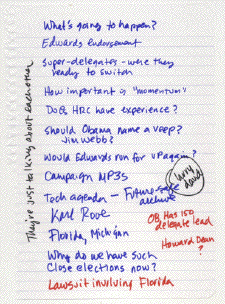 What's going to happen?
Edwards endorsement
super-delegates - were they
ready to switch
How important is "momentum"
Does HRC have experience?
Should Obama name a VEEP?
Jim Webb?
Would Edwards run for VP again?
Campaign MP3s
Tech agenda - Future-safe
archive
Karl Rove
OB Has 150
delegate lead
Florida, Michigan
Howard Dean
?
Why do we have such
close elections now?
Lawsuit involving Florida
They're just talking about each other